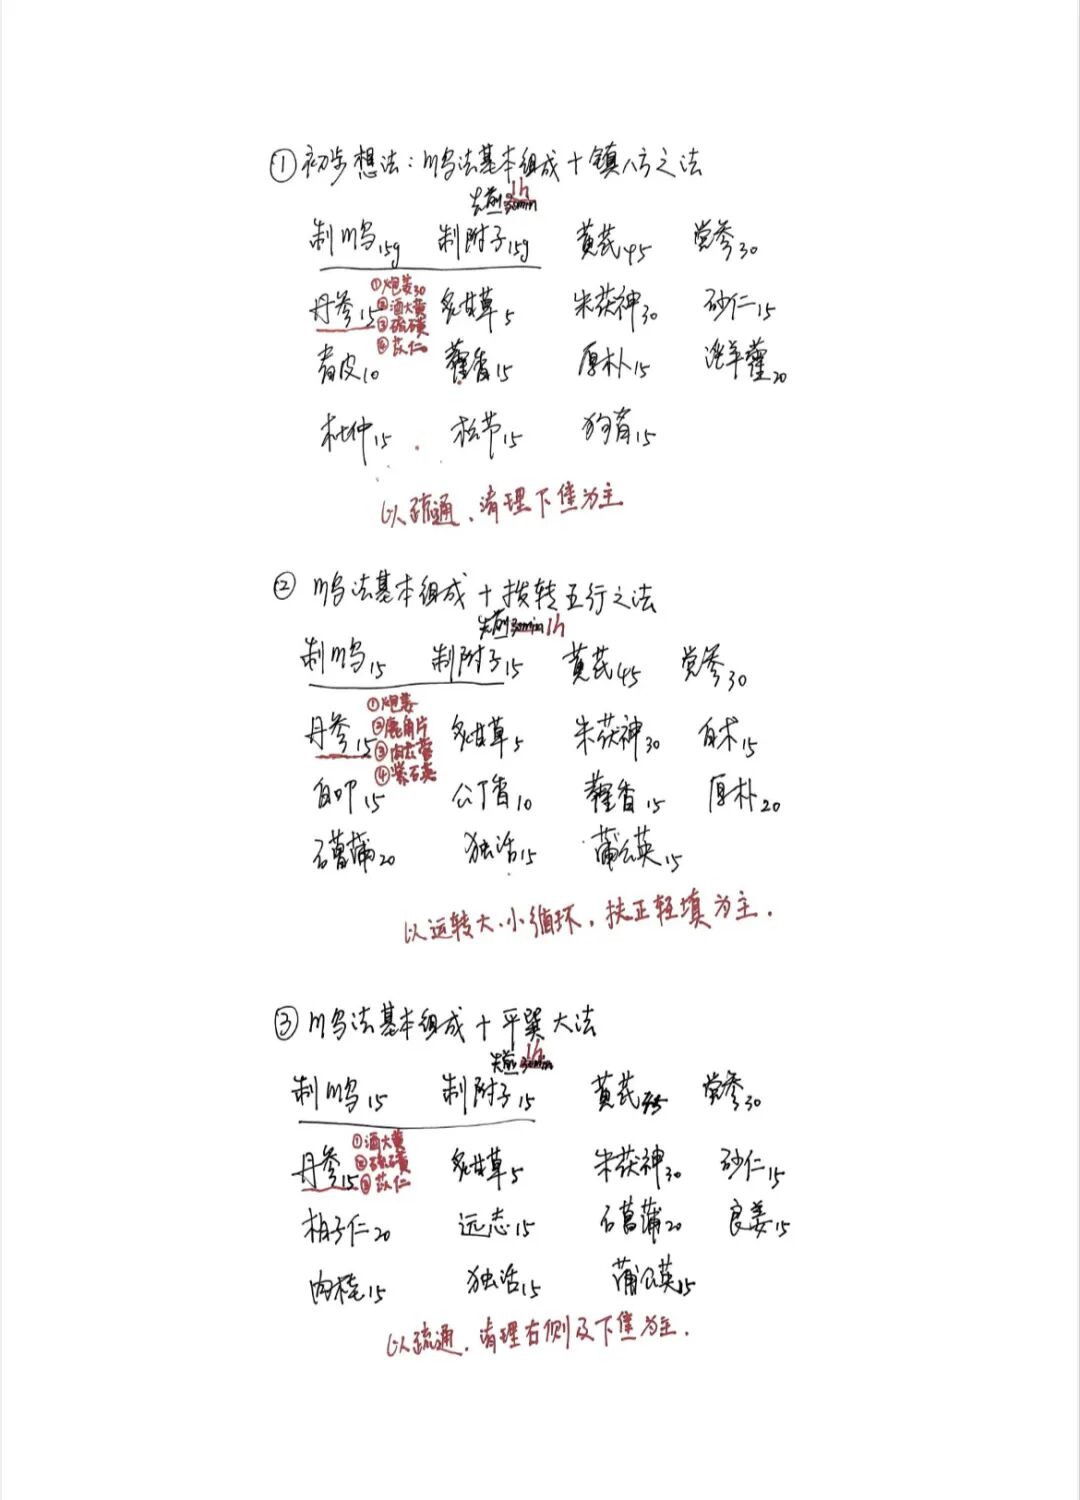 ①初步想法：川乌法基本组成+镇八方之法
先煎 30min 1h
制川乌15g 制附子15g 黄芪45 党参30
①炮姜30
丹参15 ②酒大黄 炙甘草5 朱茯神30 砂仁15
③硫磺
④苡仁
青皮10 藿香15 厚朴15 淫羊藿20
杜仲15 松节15 狗脊15
以疏通、清理下焦为主
② 川乌法基本组成+拨转五行之法
先煎30min 1h
制川乌15 制附子15 黄芪45 党参30
①炮姜
丹参15 ②鹿角片 炙甘草5 朱茯神30 白术15
③肉苁蓉
④紫石英
白叩15 公丁香10 藿香15 厚朴20
石菖蒲20 独活15 蒲公英15
以运转大、小循环，扶正轻填为主.
③川乌法基本组成+平巽大法
先煎 30min 1h
制川乌15 制附子15 黄芪45 党参30
①酒大黄
丹参15 ②硫磺 炙甘草5 朱茯神30 砂仁15
③苡仁
柏子仁20 远志15 石菖蒲20 良姜15
肉桂15 独活15 蒲公英15
以疏通、清理右侧及下焦为主.